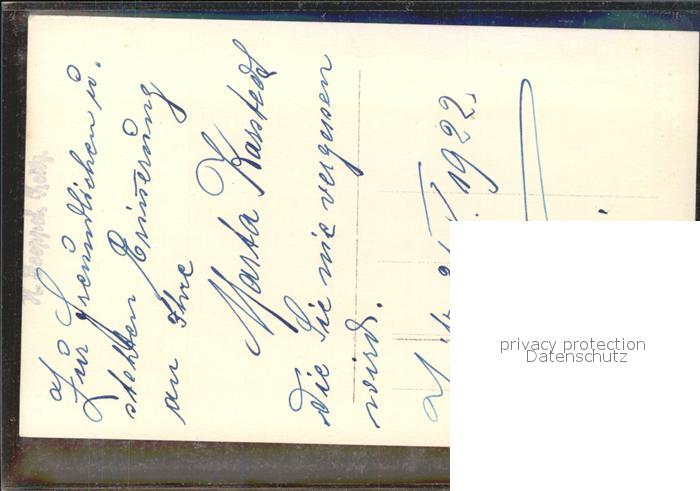 Zur freundlichen u.
stehten Erinerung
an Ihre
Marta Karstedt
die Sie nie vergessen
wird.
1922.
privacy protection
Datenschutz